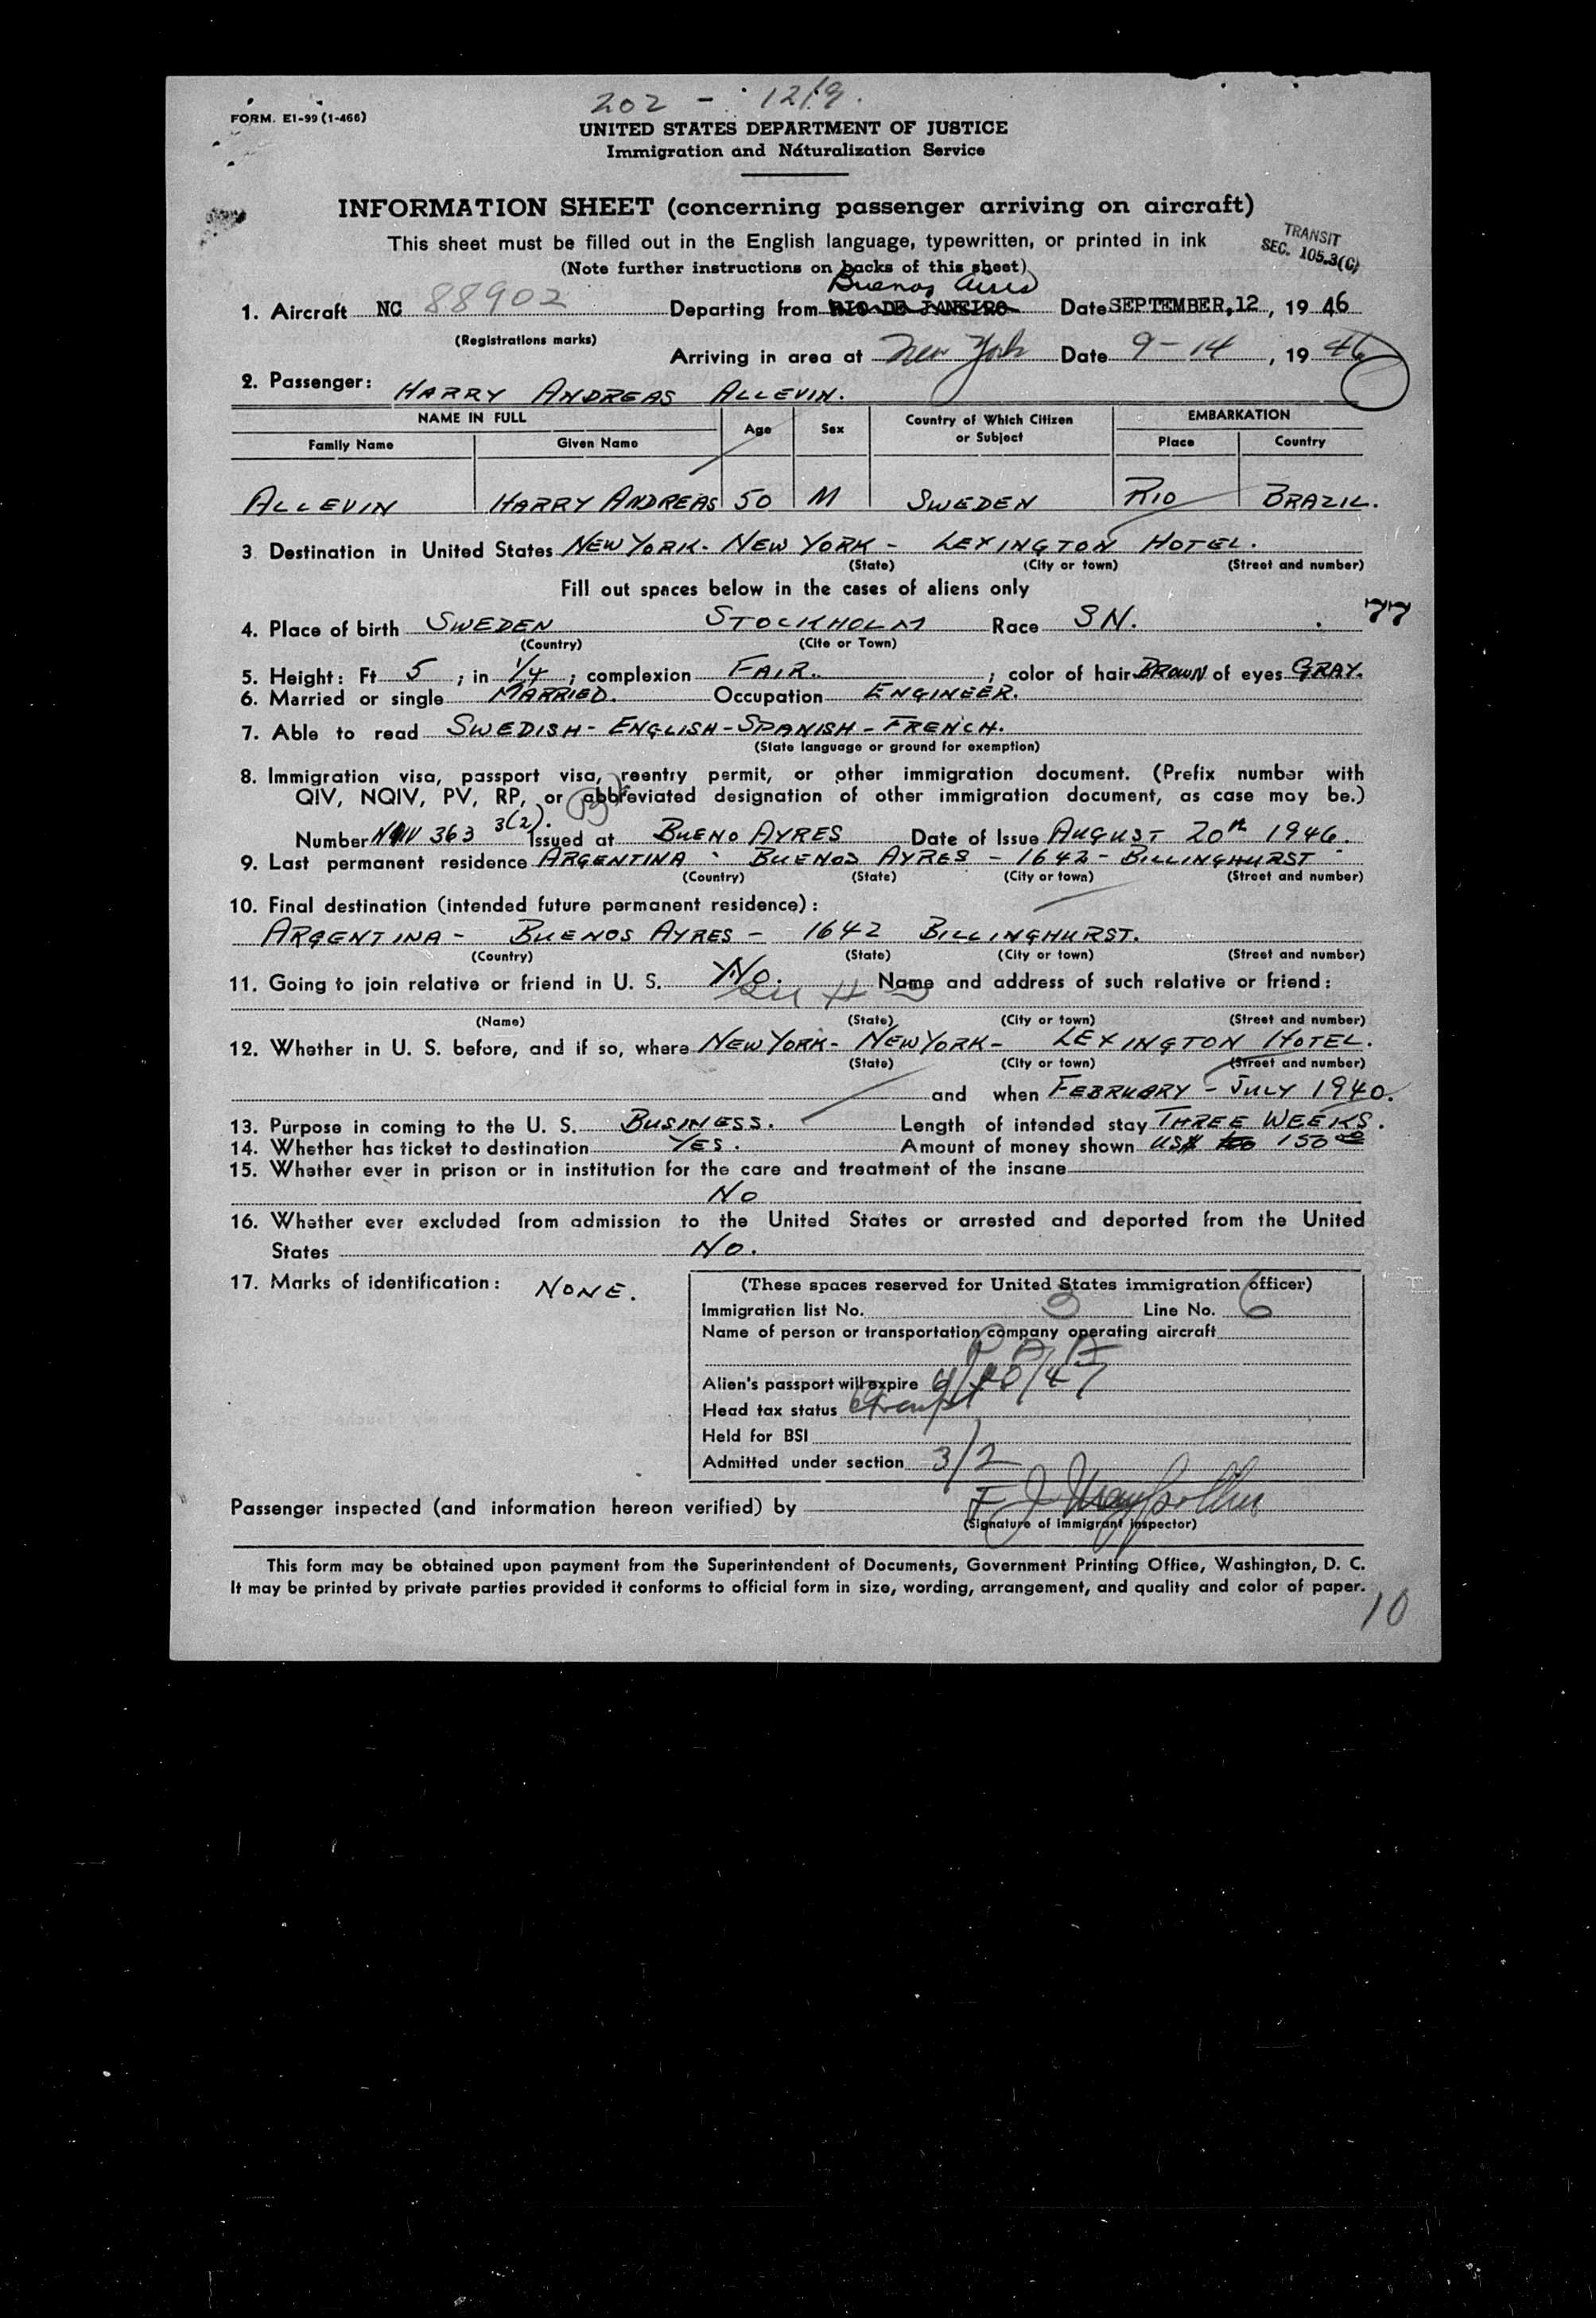 202 - 12/9.
FORM. EI-99 (1-466)
UNITED STATES DEPARTMENT OF JUSTICE
Immigration and Naturalization Service
INFORMATION SHEET (concerning passenger arriving on aircraft)
This sheet must be filled out in the English language, typewritten, or printed in ink
TRANSIT
SEC. 105.3(C)
(Note further instructions on backs of this sheet)
Buenos Aires
1. Aircraft NC 88902 Departing from RIO DE JANEIRO Date SEPTEMBER, 12, 19 46
(Registrations marks)
Arriving in area at New York Date 9-14, 19 46
2. Passenger: HARRY ANDREAS ALLEVIN.
NAME IN FULL Age Sex Country of Which Citizen or Subject EMBARKATION
Family Name Given Name Place Country
ALLEVIN HARRY ANDREAS 50 M SWEDEN RIO BRAZIL.
3 Destination in United States NEW YORK- NEW YORK- LEXINGTON HOTEL.
(State) (City or town) (Street and number)
Fill out spaces below in the cases of aliens only
77
4. Place of birth SWEDEN STOCKHOLM Race SN.
(Country) (Cite or Town)
5. Height: Ft 5 ; in 1/4 ; complexion FAIR. ; color of hair BROWN of eyes GRAY.
6. Married or single MARRIED. Occupation ENGINEER.
7. Able to read SWEDISH- ENGLISH-SPANISH-FRENCH.
(State language or ground for exemption)
8. Immigration visa, passport visa, reentry permit, or other immigration document. (Prefix number with
QIV, NQIV, PV, RP, or abbreviated designation of other immigration document, as case may be.)
Number NQIV 363 3(2). Issued at BUENO AYRES Date of Issue AUGUST 20th 1946.
9. Last permanent residence ARGENTINA BUENOS AYRES - 1642 - BILLINGHURST
(Country) (State) (City or town) (Street and number)
10. Final destination (intended future permanent residence):
ARGENTINA- BUENOS AYRES - 1642 BILLINGHURST.
(Country) (State) (City or town) (Street and number)
11. Going to join relative or friend in U. S. No. Name and address of such relative or friend:
(Name) (State) (City or town) (Street and number)
12. Whether in U. S. before, and if so, where NEW YORK- NEW YORK- LEXINGTON HOTEL.
(State) (City or town) (Street and number)
and when FEBRUARY - JULY 1940.
13. Purpose in coming to the U. S. BUSINESS. Length of intended stay THREE WEEKS.
14. Whether has ticket to destination YES. Amount of money shown US$ 150 00
15. Whether ever in prison or in institution for the care and treatment of the insane
No
16. Whether ever excluded from admission to the United States or arrested and deported from the United
States No.
17. Marks of identification: NONE.
(These spaces reserved for United States immigration officer)
Immigration list No. 3 Line No. 6
Name of person or transportation company operating aircraft
P A A
Alien's passport will expire
Head tax status Exempt
Held for BSI
Admitted under section 3/2
Passenger inspected (and information hereon verified) by
(Signature of immigrant inspector)
This form may be obtained upon payment from the Superintendent of Documents, Government Printing Office, Washington, D. C.
It may be printed by private parties provided it conforms to official form in size, wording, arrangement, and quality and color of paper.
10